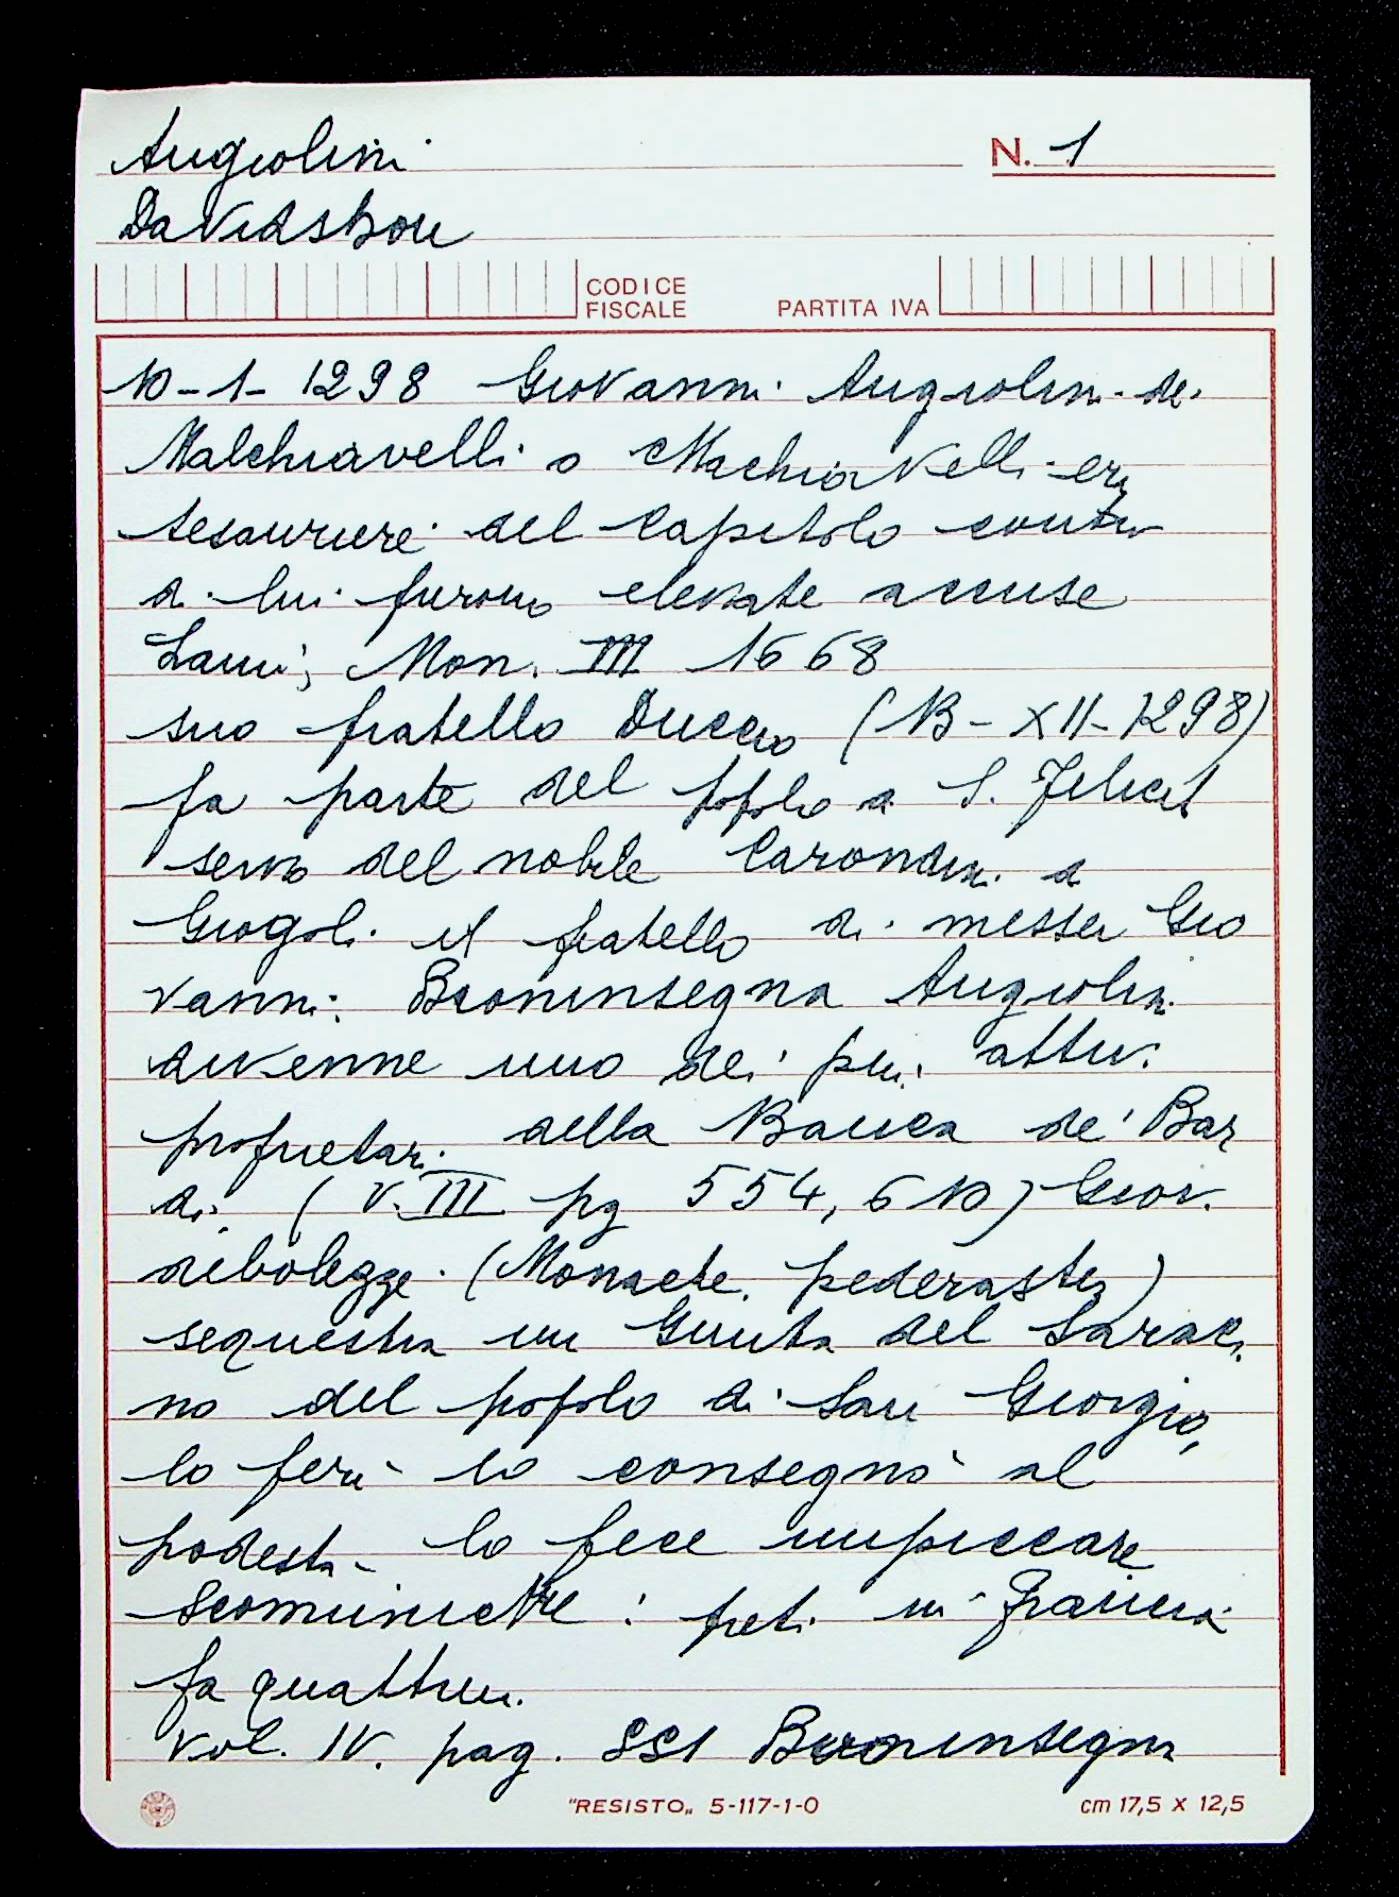 Angiolini
N. 1
Davidshon
CODICE
FISCALE
PARTITA IVA
10-1-1298 Giovanni Angiolini dei
Malchiavelli o Machiavelli era
tesauriere del Capitolo contro
di lui furono elevate accuse
Lami, Mon. III 1668
suo fratello Duccio (13-XII-1298)
fa parte del popolo a S. Felicit
servo del nobile a
Giogoli il fratello di messer Gio
vanni; Buoninsegna Angiolini
divenne uno dei più attivi
proprietari della Banca de' Bar
di. (V. III pg 554, 610) Giov.
debolezze. (Monache. pederastia)
sequestra un Giunta del Saraci
no del popolo di San Giorgio,
lo ferì lo consegnò al
podestà lo fece impiccare
: preti in Francia
fa quattrini.
Vol. IV. pag. 551 Buoninsegna
"RESISTO„ 5-117-1-0
cm 17,5 x 12,5